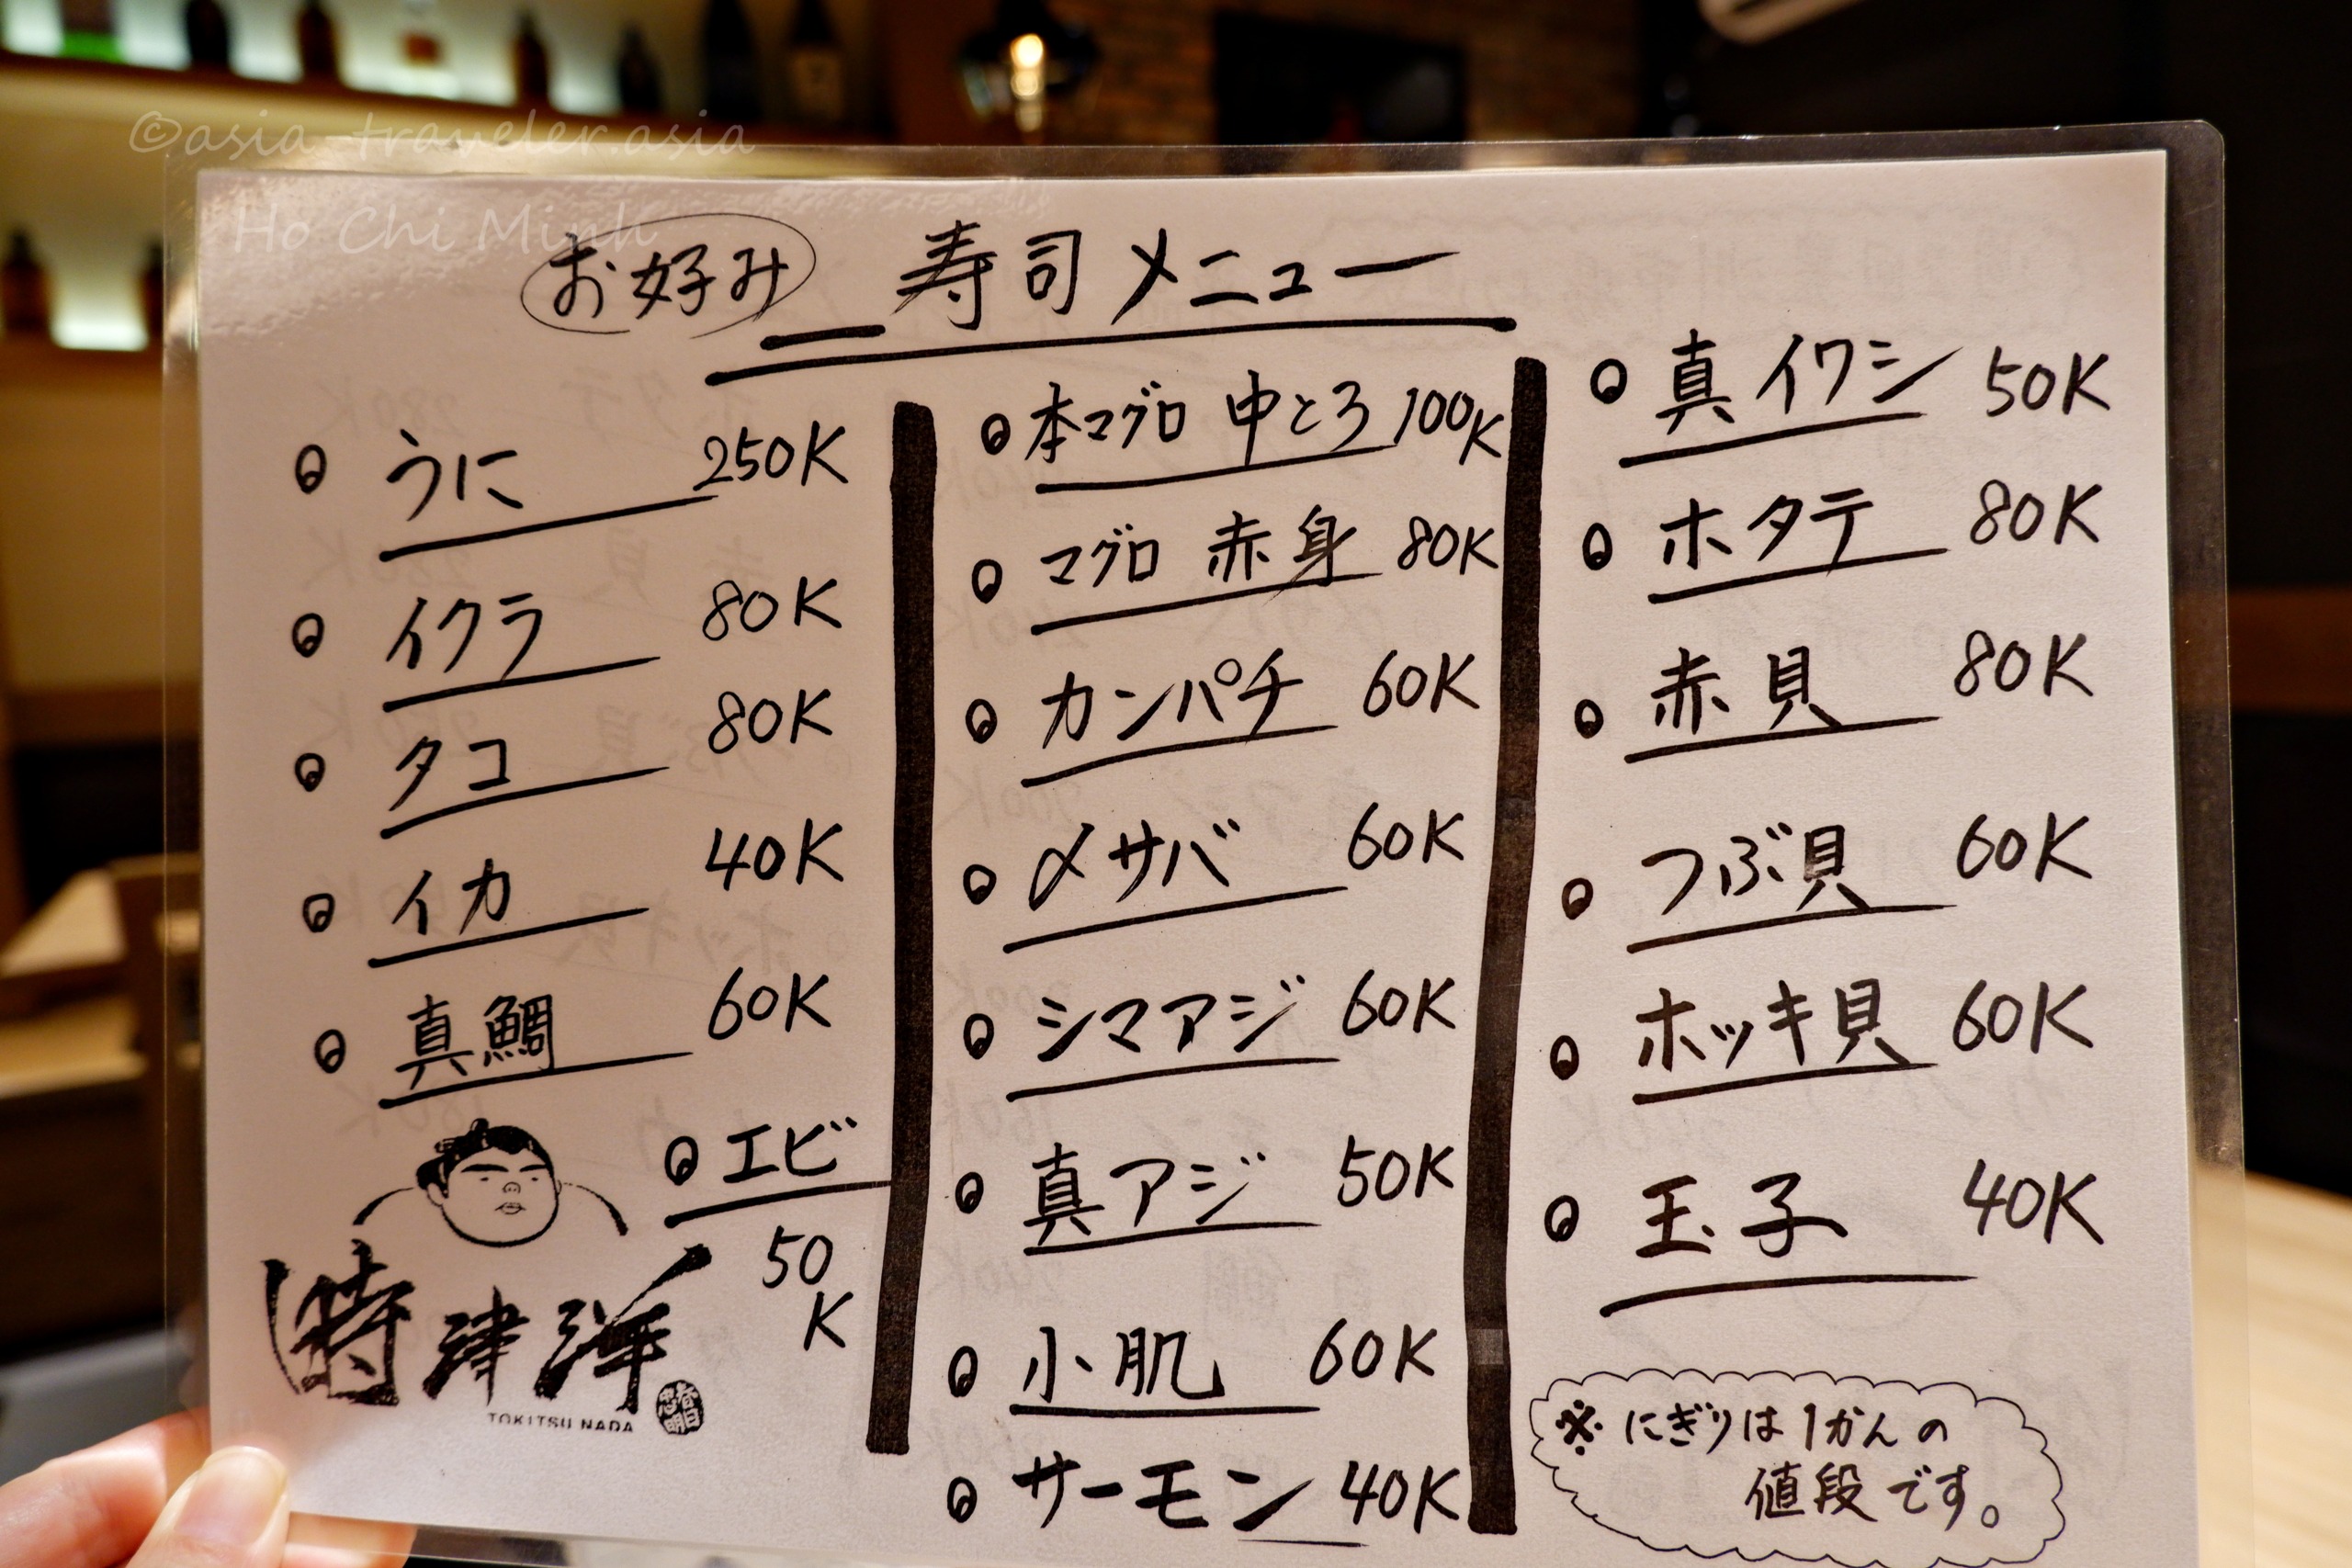 ©asia-traveler.asia
Ho Chi Minh
お好み 寿司メニュー
うに 250K
イクラ 80K
タコ 80K
イカ 40K
真鯛 60K
エビ
50
K
時津洋
TOKITSU NADA
本マグロ 中とろ 100K
マグロ 赤身 80K
カンパチ 60K
〆サバ 60K
シマアジ 60K
真アジ 50K
小肌 60K
サーモン 40K
真イワシ 50K
ホタテ 80K
赤貝 80K
つぶ貝 60K
ホッキ貝 60K
玉子 40K
※にぎりは1かんの
値段です。